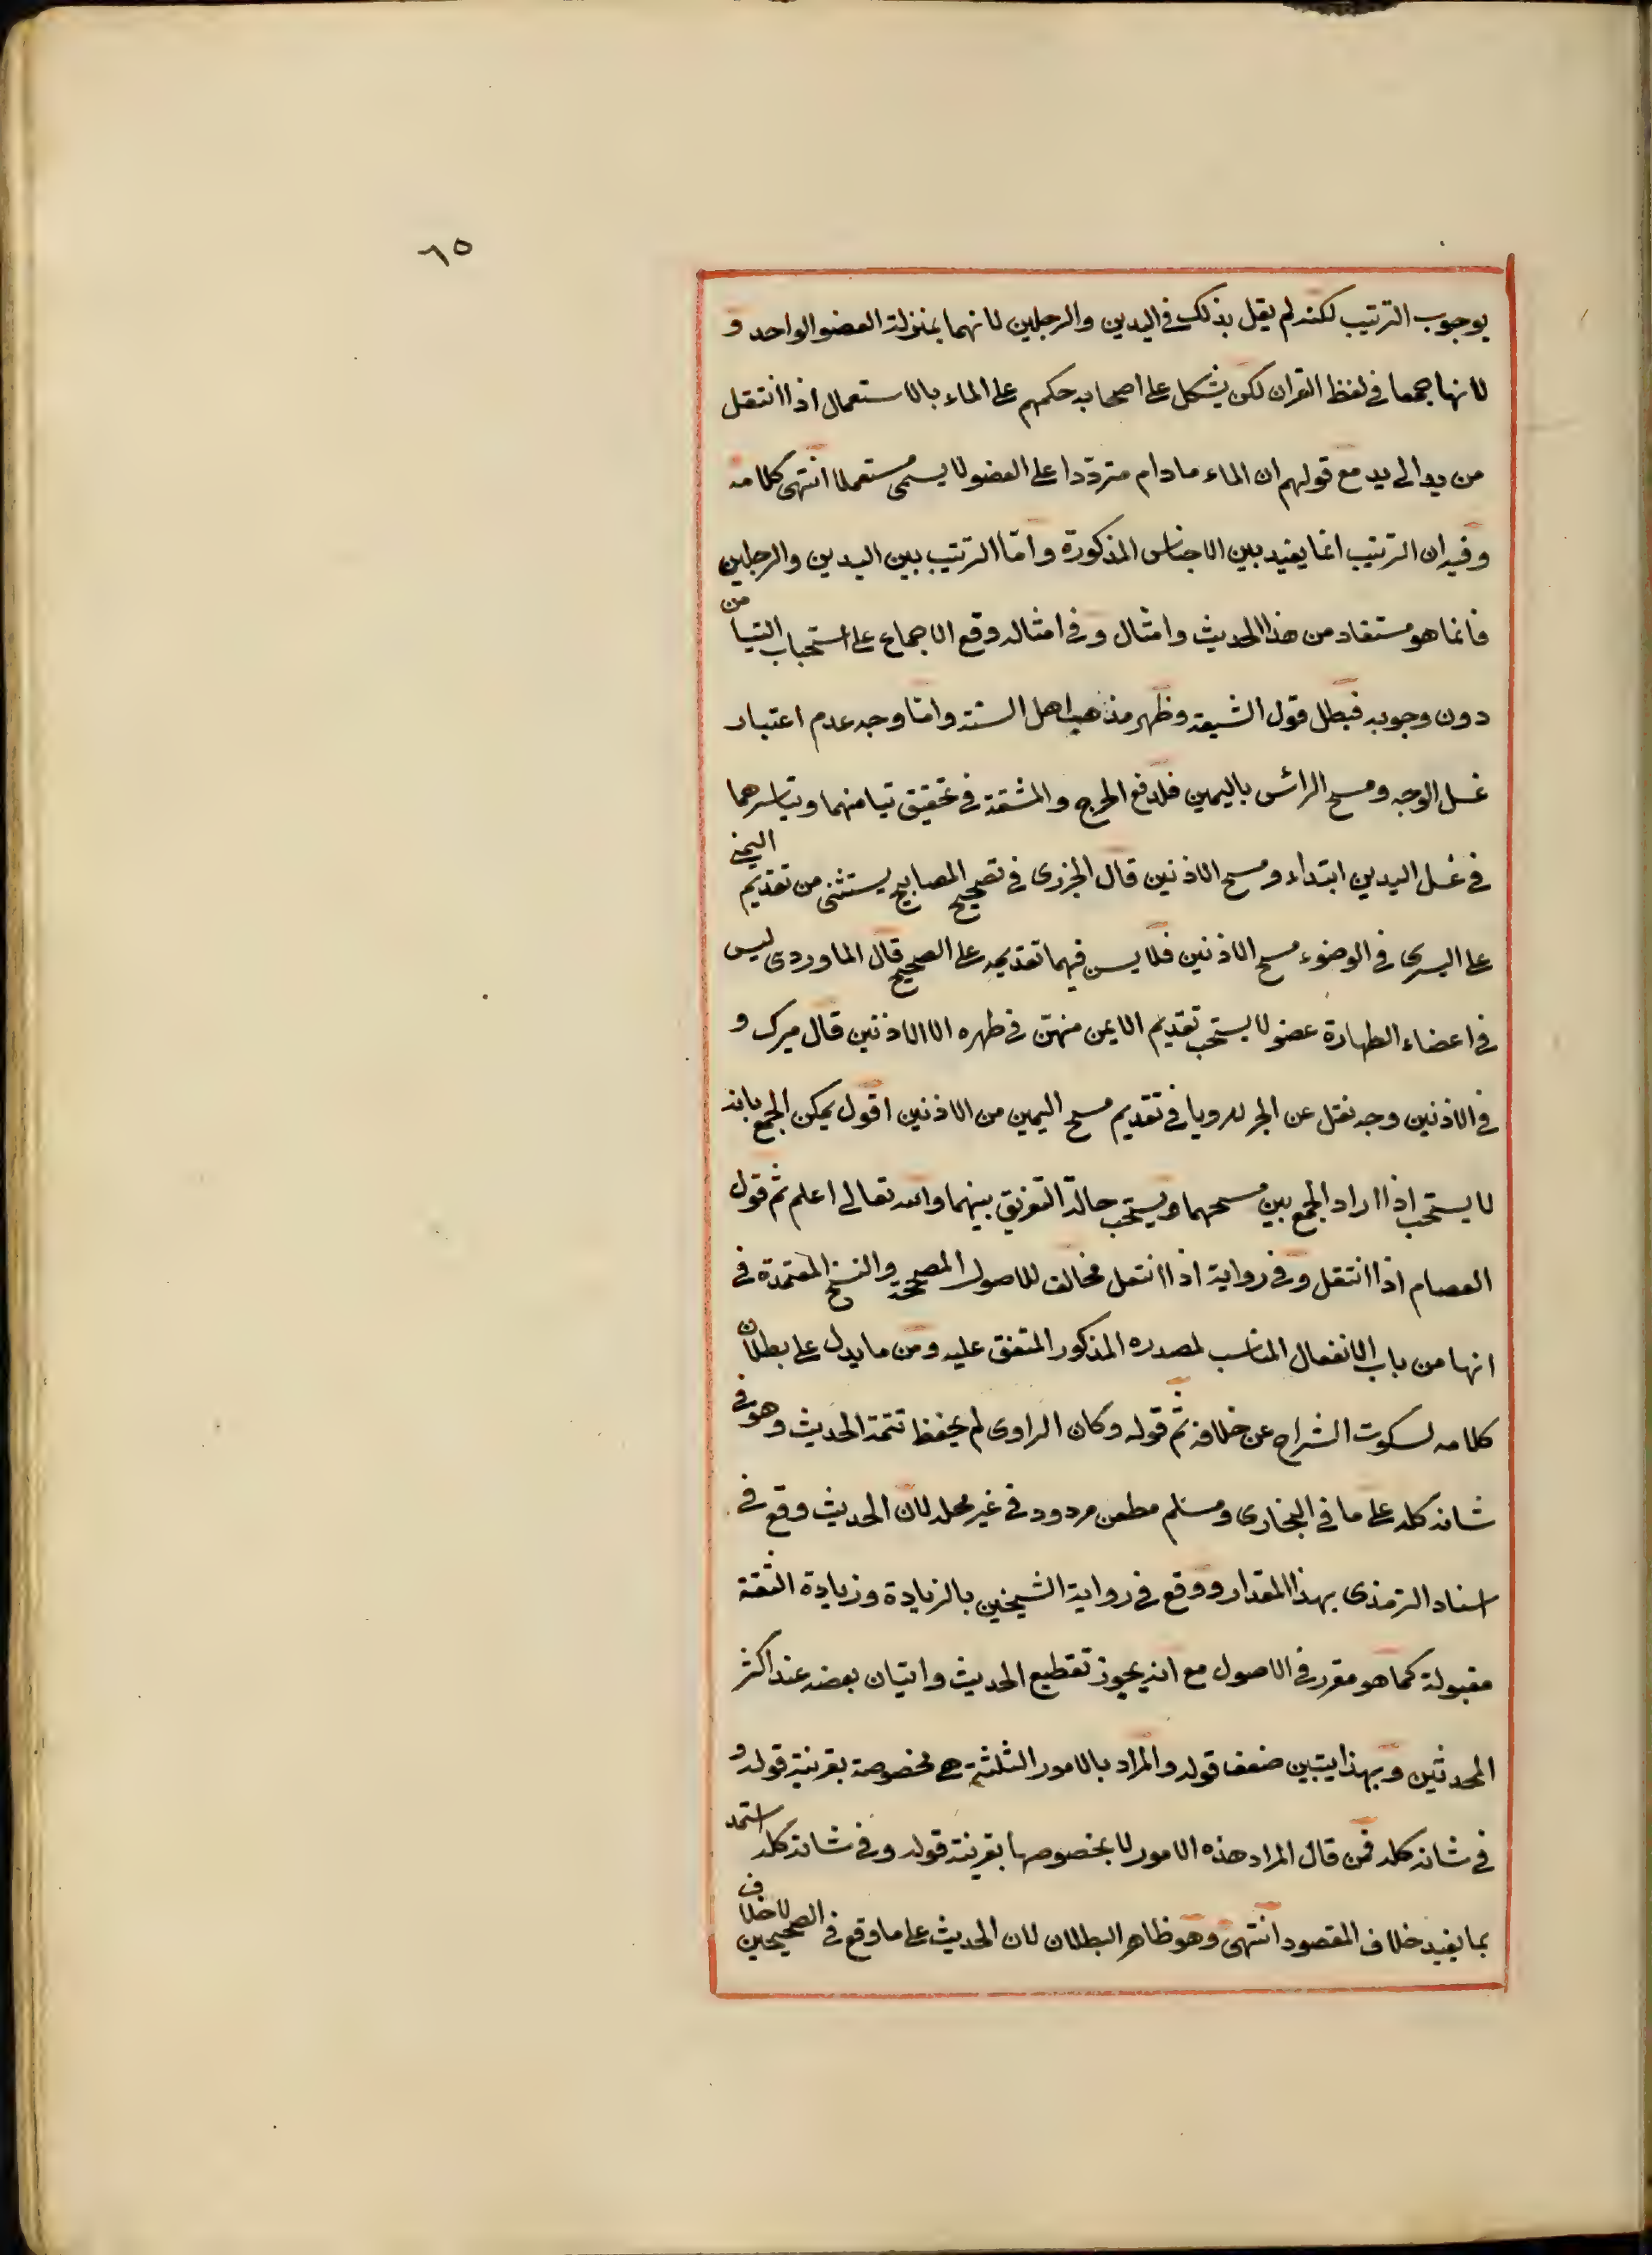 ٦٥
بوجوب الترتيب لكنه لم يقل بذلك في اليدين والرجلين لانهما بمنزلة العضو الواحد و
لانهما جمعا في لفظ القران لكن يشكل على اصحابه حكمهم على الماء بالاستعمال اذا انتقل
من يد الى يد مع قولهم ان الماء مادام مترددا على العضو لا يسمى مستعملا انتهى كلامه
وفيه ان الترتيب انما يفيد بين الاجناس المذكورة وامّا الترتيب بين اليدين والرجلين
فانما هو مستفاد من هذا الحديث وامثال وفي امثاله وقع الاجماع على استحباب التيامن
دون وجوبه فبطل قول الشيعة وظهر مذهب اهل السنة وامّا وجه عدم اعتبار
غسل الوجه ومسح الرأس باليمين فلدفع الحرج والمشقة في تحقيق تيامنهما وتياسرهما
في غسل اليدين ابتداء ومسح الاذنين قال الجزرى في تصحيح المصابيح يستثنى من تقديم اليمنى
على اليسرى في الوضوء مسح الاذنين فلا يسن فيهما تقديمه على الصحيح قال الماوردى ليس
في اعضاء الطهارة عضو لا يستحب تقديم الايمن منهن في طهره الا الاذنين قال ميرك و
في الاذنين وجه نقل عن البحر للرويا في تقديم مسح اليمين من الاذنين اقول يمكن الجمع بانه
لا يستحب اذا اراد الجمع بين مسحهما ويستحب حالة التفريق بينهما والله تعالى اعلم ثم قول
العصام اذا انتقل وفي رواية اذا انتعل مخالف للاصول المصححة والنسخ المعتمدة في
انها من باب الانفعال المناسب لمصدره المذكور المتفق عليه ومن ما يدل على بطلان
كلامه لسكوت الشراح عن خلافه ثم قوله وكان الراوى لم يحفظ تتمة الحديث وهو في
شانه كله على ما في البخارى ومسلم مطعن مردود في غير محله لان الحديث وقع في
اسناد الترمذى بهذا المقدار ووقع في رواية الشيخين بالزيادة وزيادة الثقة
مقبولة كما هو مقرر في الاصول مع انه يجوز تقطيع الحديث واتيان بعضه عند اكثر
المحدثين وبهذا يتبين ضعف قوله والمراد بالامور الثلثة هي مخصوصة بقرينة قوله و
في شانه كله فمن قال المراد هذه الامور لا بخصوصها بقرينة قوله وفي شانه كله استمد
بما يفيد خلاف المقصود انتهى وهو ظاهر البطلان لان الحديث على ما وقع في الصحيحين لا خلاف